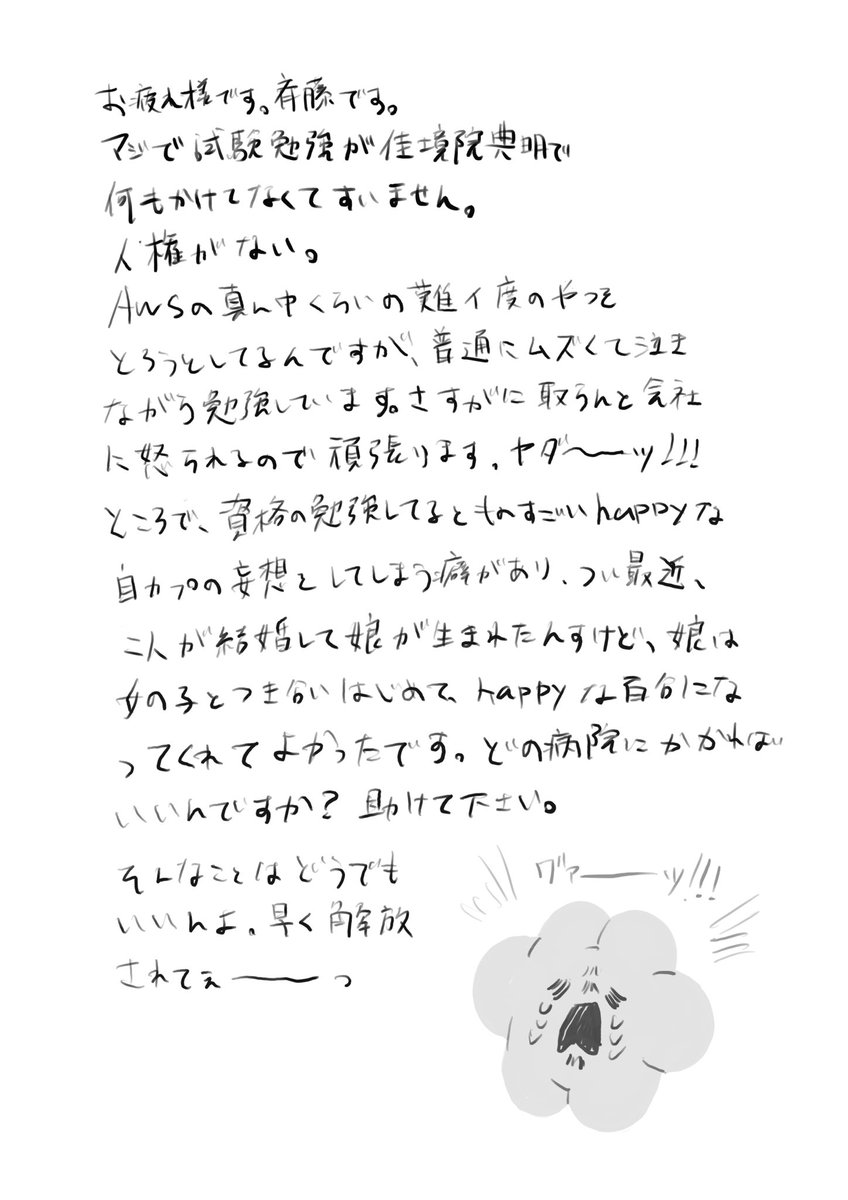 お疲れ様です。斉藤です。
マジで試験勉強が佳境院典明で
何もかけてなくてすいません。
人権がない。
AWSの真ん中くらいの難イ度のやつを
とろうとしてるんですが、普通にムズくて泣き
ながら勉強しています。さすがに取らんと会社
に怒られるので頑張ります。ヤダ〜ーッ!!!
ところで、資格の勉強してるとものすごいhappyな
自カプの妄想をしてしまう癖があり、つい最近、
二人が結婚して娘が生まれたんすけど、娘は
女の子とつき合いはじめて、happyな百合にな
ってくれてよかったです。どの病院にかかれば
いいんですか?助けて下さい。
そんなことはどうでも
いいんよ。早く解放
されてぇ――っ
グァ――ッ!!!